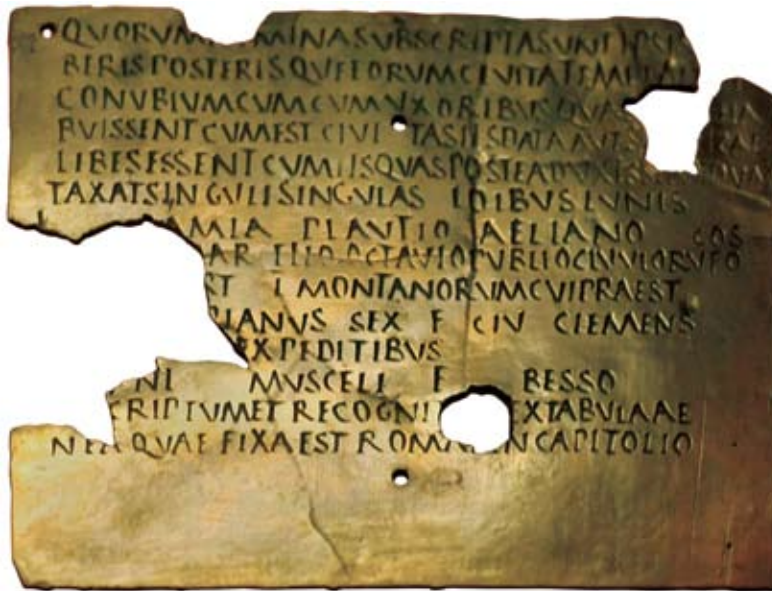 QVORVM MINASVBSCRIPTASVNT IPSIS
BERISPOSTERISQVEEORVMCIVITATEMDED
CONVBIVMCVMCVMVXORIBVSQVAS
BVISSENTCVMESTCIVITASIISDATAAVTS
LIBESESSENTCVMIISQVASPOSTEADVXIS
TAXATSINGVLISINGVLAS IDIBVS IVNIS
AMIA PLAVTIO AELIANO COS
AR ELLO OCTAVIO PVBLIOCLVVIORVFO
RT I MONTANORVMCVIPRAEST
IANVS SEX F CIV CLEMENS
EXPEDITIBVS
NI MVSCELLI F BESSO
CRIPTVMET RECOGNI EXTABVLAAE
NEA QVAE FIXAEST ROMA INCAPITOLIO